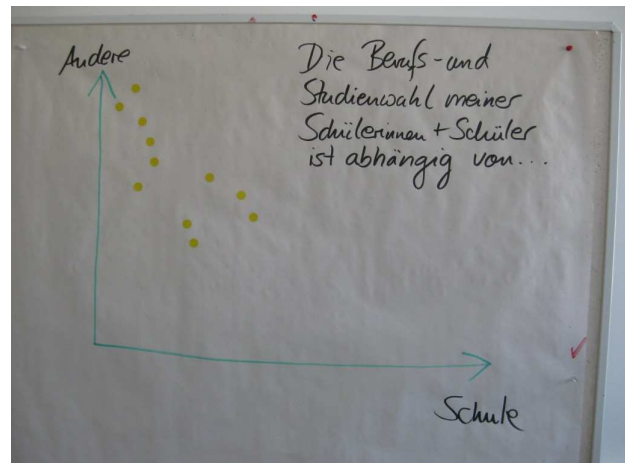 Andere
Die Berufs- und
Studienwahl meiner
Schülerinnen + Schüler
ist abhängig von...
Schule